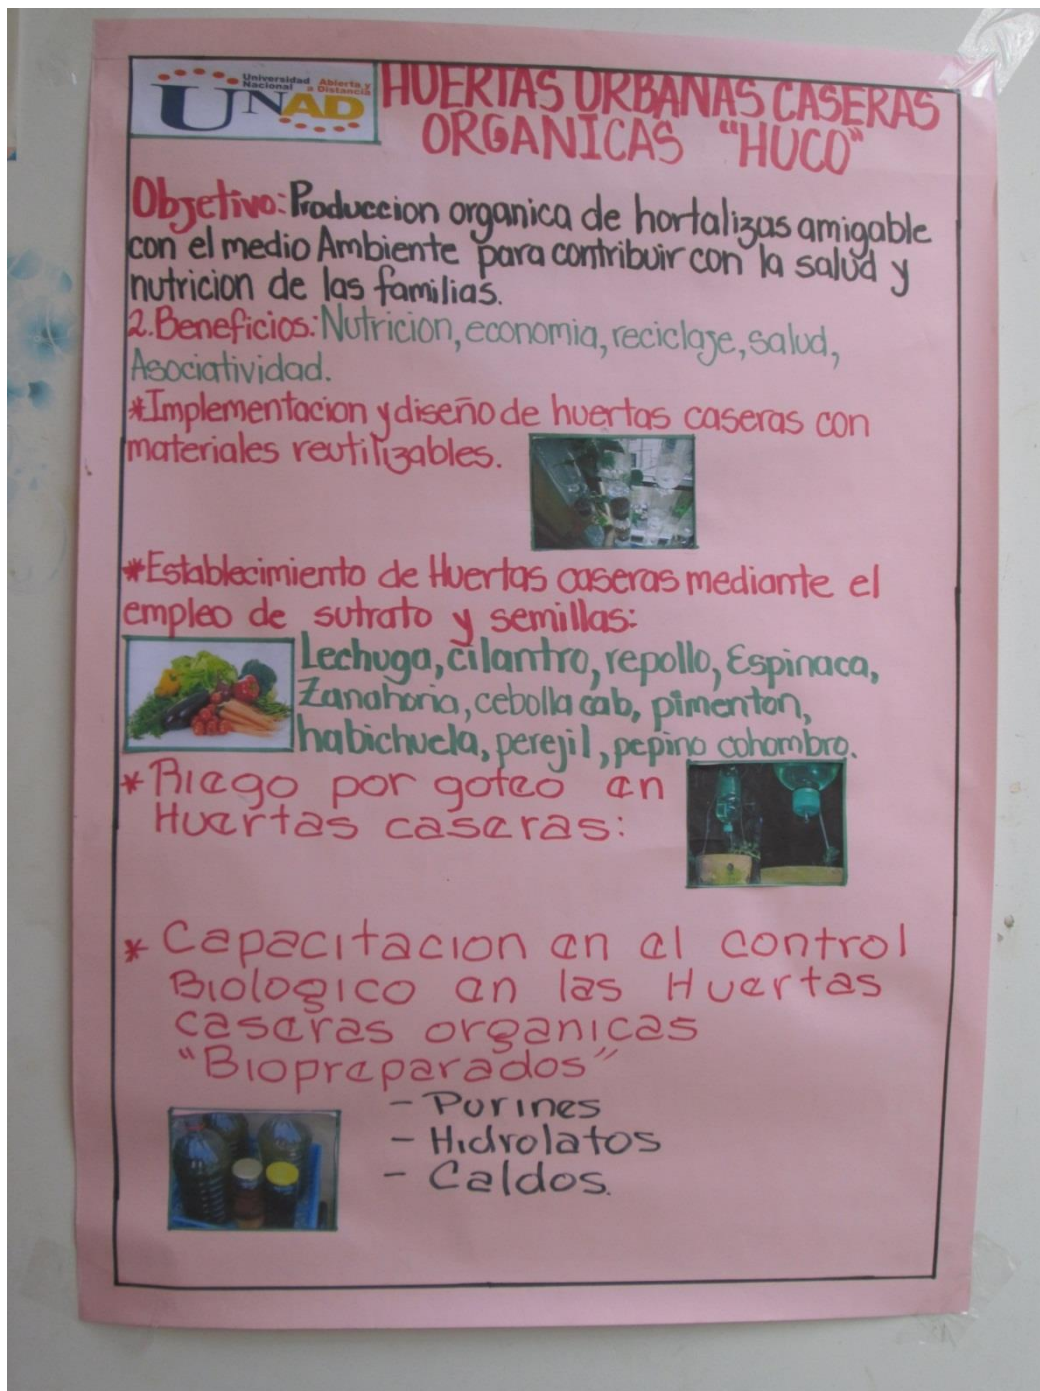 Universidad Abierta y
Nacional a Distancia
UNAD
HUERTAS URBANAS CASERAS
ORGANICAS "HUCO"
Objetivo: Produccion organica de hortalizas amigable
con el medio Ambiente para contribuir con la salud y
nutricion de las familias.
2. Beneficios: Nutricion, economia, reciclaje, salud,
Asociatividad.
*Implementacion y diseño de huertas caseras con
materiales reutilizables.
*Establecimiento de Huertas caseras mediante el
empleo de sutrato y semillas:
Lechuga, cilantro, repollo, Espinaca,
Zanahoria, cebolla cab, pimenton,
habichuela, perejil, pepino cohombro.
* Riego por goteo en
Huertas caseras:
* Capacitacion en el control
Biologico en las Huertas
caseras organicas
"Biopreparados"
- Purines
- Hidrolatos
- Caldos.